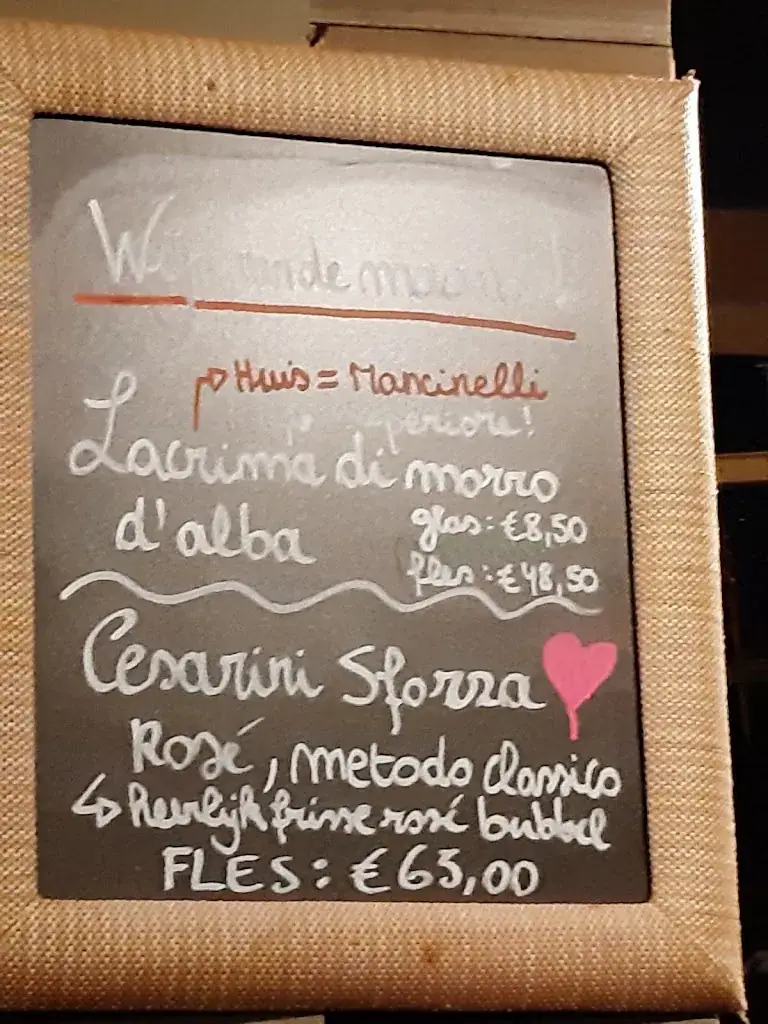 de
Huis = Mancinelli
superiore!
Lacrima di morro
d'alba
glas: €8,50
fles: €48,50
Cesarini Sforza
Rosé, metodo classico
Heerlijk frisse rosé bubbel
FLES: €65,00